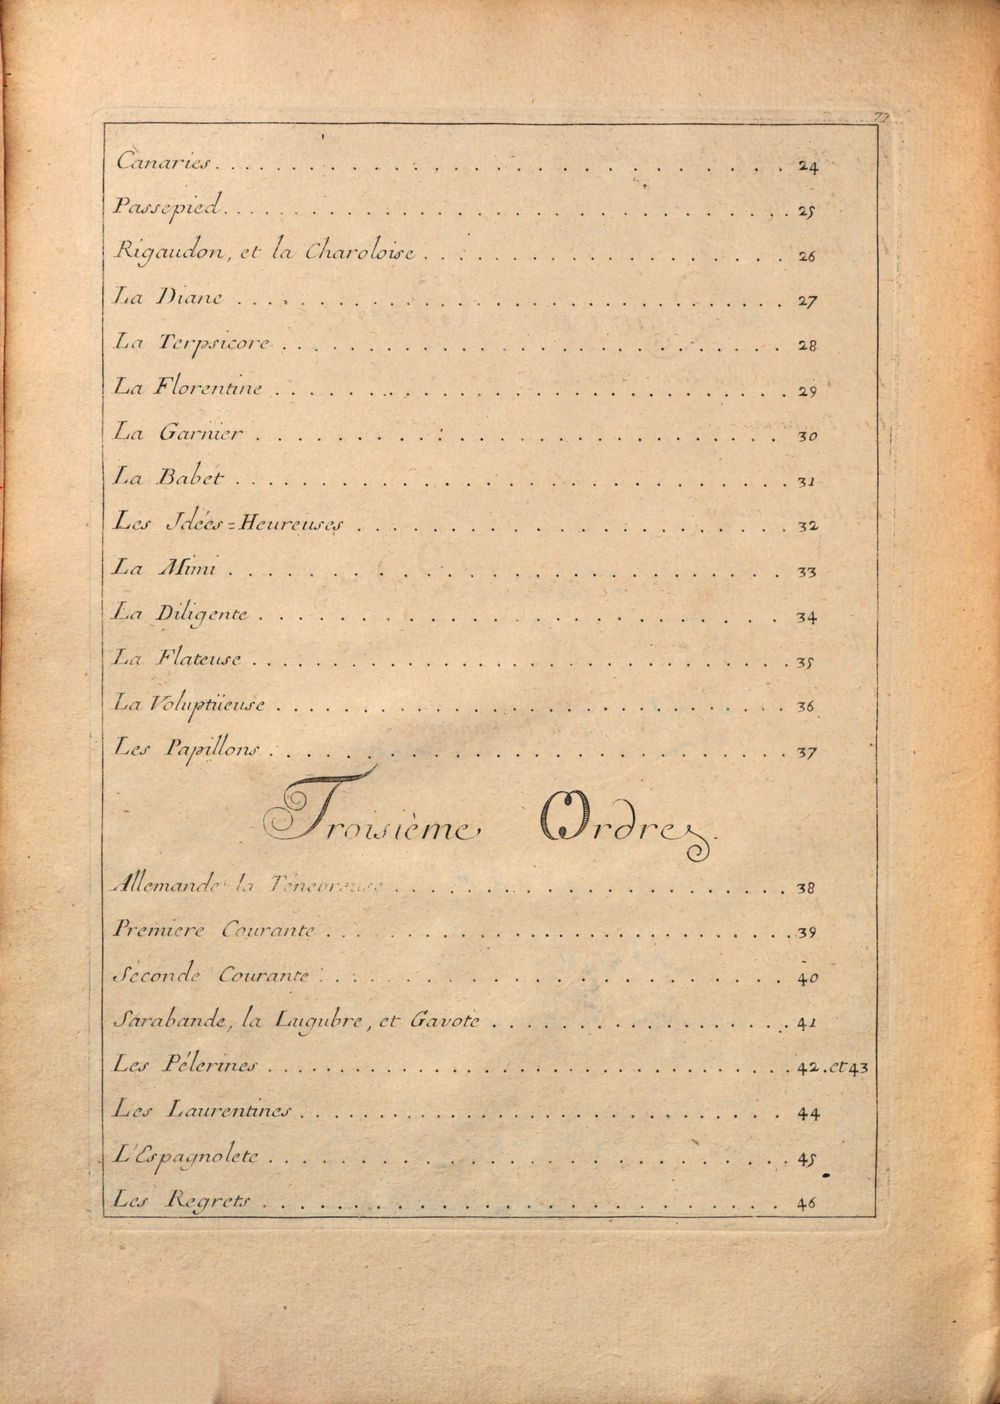 77
Canaries . . . . . . . . . . . . . . . . . . . . . . . . . . . 24
Passepied . . . . . . . . . . . . . . . . . . . . . . . . . . . 25
Rigaudon, et la Charoloise . . . . . . . . . . . . . . . . . . . 26
La Diane . . . . . . . . . . . . . . . . . . . . . . . . . . . 27
La Terpsicore . . . . . . . . . . . . . . . . . . . . . . . . . 28
La Florentine . . . . . . . . . . . . . . . . . . . . . . . . . 29
La Garnier . . . . . . . . . . . . . . . . . . . . . . . . . . 30
La Babet . . . . . . . . . . . . . . . . . . . . . . . . . . . 31
Les Idées=Heureuses . . . . . . . . . . . . . . . . . . . . . . 32
La Mimi . . . . . . . . . . . . . . . . . . . . . . . . . . . 33
La Diligente . . . . . . . . . . . . . . . . . . . . . . . . . 34
La Flateuse . . . . . . . . . . . . . . . . . . . . . . . . . . 35
La Voluptüeuse . . . . . . . . . . . . . . . . . . . . . . . . 36
Les Papillons . . . . . . . . . . . . . . . . . . . . . . . . . 37
Troisième Ordre.
Allemande la Ténebreuse . . . . . . . . . . . . . . . . . . . . 38
Premiere Courante . . . . . . . . . . . . . . . . . . . . . . . 39
Seconde Courante . . . . . . . . . . . . . . . . . . . . . . . 40
Sarabande, la Lugubre, et Gavote . . . . . . . . . . . . . . . . 41
Les Pélerines . . . . . . . . . . . . . . . . . . . . . . . . . 42.et 43
Les Laurentines . . . . . . . . . . . . . . . . . . . . . . . . 44
L'Espagnolete . . . . . . . . . . . . . . . . . . . . . . . . . 45
Les Regrets . . . . . . . . . . . . . . . . . . . . . . . . . . 46